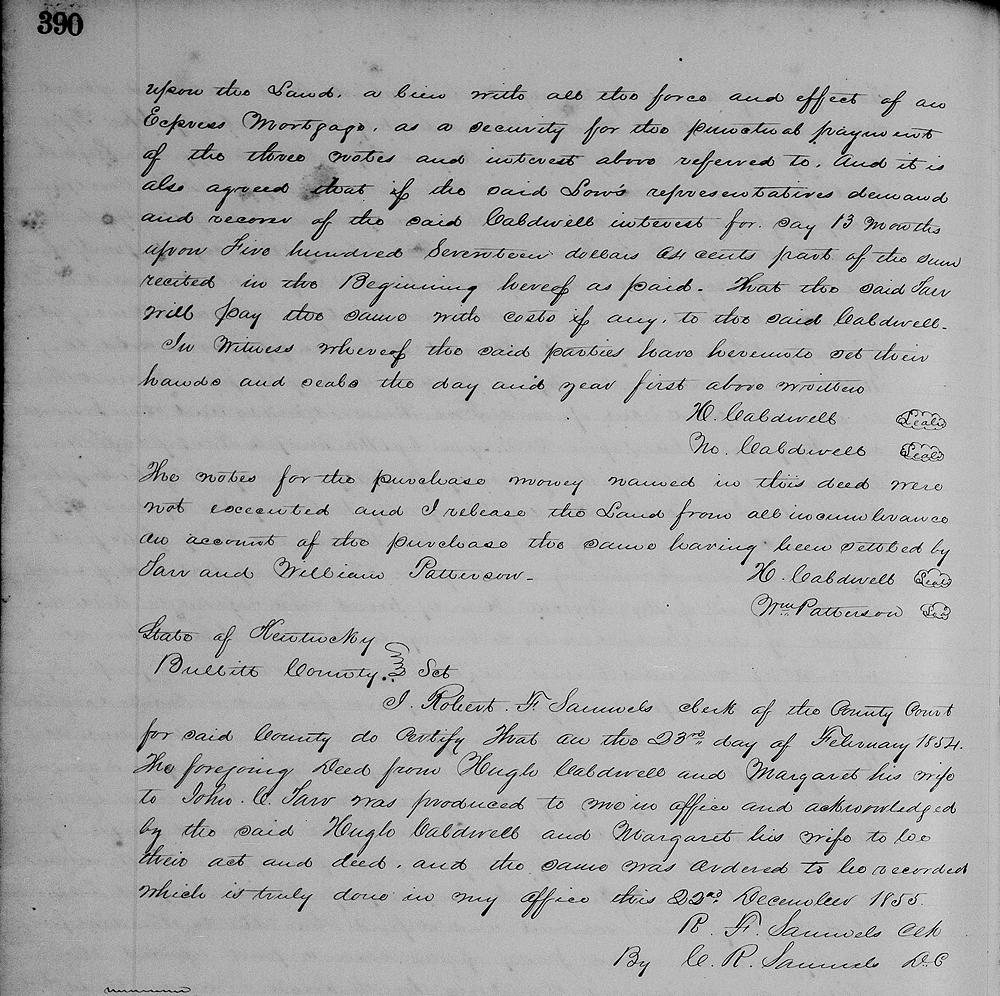 390
upon the Land. a lien with all the force and effect of an
Express Mortgage. as a security for the punctual payment
of the three notes and interest above referred to. And it is
also agreed that if the said Low's representatives demand
and recover of the said Caldwell interest for say 13 Months
upon Five hundred Seventeen dollars 64 cents part of the sum
recited in the Beginning hereof as paid. That the said Tarr
will pay the same with costs if any. to the said Caldwell.
In Witness whereof the said parties have hereunto set their
hands and seals the day and year first above written
H. Caldwell Seal
M. Caldwell Seal
The notes for the purchase money named in this deed were
not executed and I release the Land from all incumbrance
on account of the purchase the same having been settled by
Tarr and William Patterson.
H. Caldwell Seal
Wm Patterson Seal
State of Kentucky
Bullitt County. Sct
I. Robert. F. Samuels clerk of the County Court
for said County do Certify That on the 23rd day of February 1854.
The foregoing Deed from Hugh Caldwell and Margaret his wife
to John. C. Tarr was produced to me in office and acknowledged
by the said Hugh Caldwell and Margaret his wife to be
their act and deed. and the same was ordered to be recorded
which is truly done in my office this 22nd December 1855.
R. F. Samuels Clk
By C. R. Samuels D.C